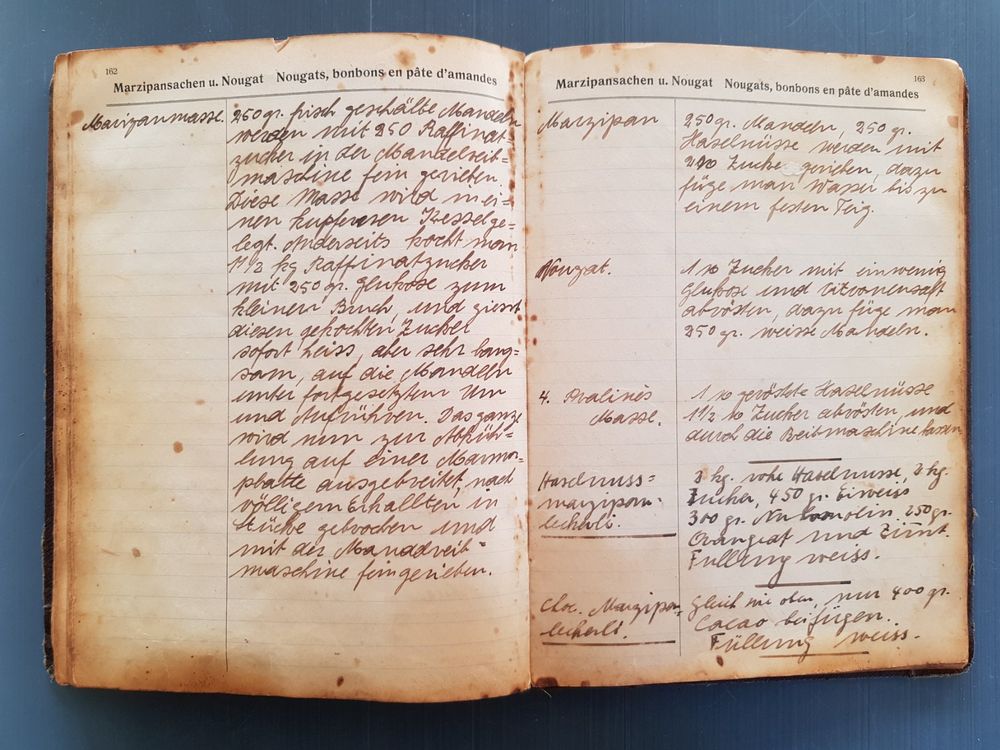 162
Marzipansachen u. Nougat Nougats, bonbons en pâte d'amandes
Marzipanmasse. 250 gr. frisch geschälte Mandeln
werden mit 250 Raffinat-
zucker in der Mandelreib=
maschine fein gerieben
Diese Masse wird in ei-
nen kupferen Kessel ge-
legt. Anderseits kocht man
1 1/2 kg Raffinatzucker
mit 250 gr. Glukose zum
kleinen Bruch, und giesst
diesen gekochten Zucker
sofort heiss, aber sehr lang=
sam, auf die Mandeln
unter fortgesetzten Um
und Aufrühren. Das ganze
wird nun zur Abküh-
lung auf einer Marmor-
platte ausgebreitet, nach
völligem Erkallten in
Stücke gebrochen und
mit der Mandelreib-
maschine feingerieben.
163
Marzipansachen u. Nougat Nougats, bonbons en pâte d'amandes
Marzipan
250 gr. Mandeln, 250 gr.
Haselnüsse werden mit
Zucker gerieben, dazu
füge man Wasser bis zu
einem festen Teig.
Nougat.
1 Zucker mit ein wenig
Glukose und Citronensaft
abrösten, dazu füge man
250 gr. weisse Mandeln.
4. Pralinés
Masse.
1 geröstete Haselnüsse
1 1/2 Zucker abrösten, und
durch die Reibmaschine lassen
Haselnuss=
marzipan-
lecherli.
2 kg. rohe Haselnusse, 2 kg.
Zucker, 450 gr. Eiweis
300 gr. 250 gr.
Orangeat und Zimt.
Füllung weiss.
Choc. Marzipan-
lecherli.
Gleich wie oben, nur 400 gr.
Cacao beifügen.
Füllung weiss.